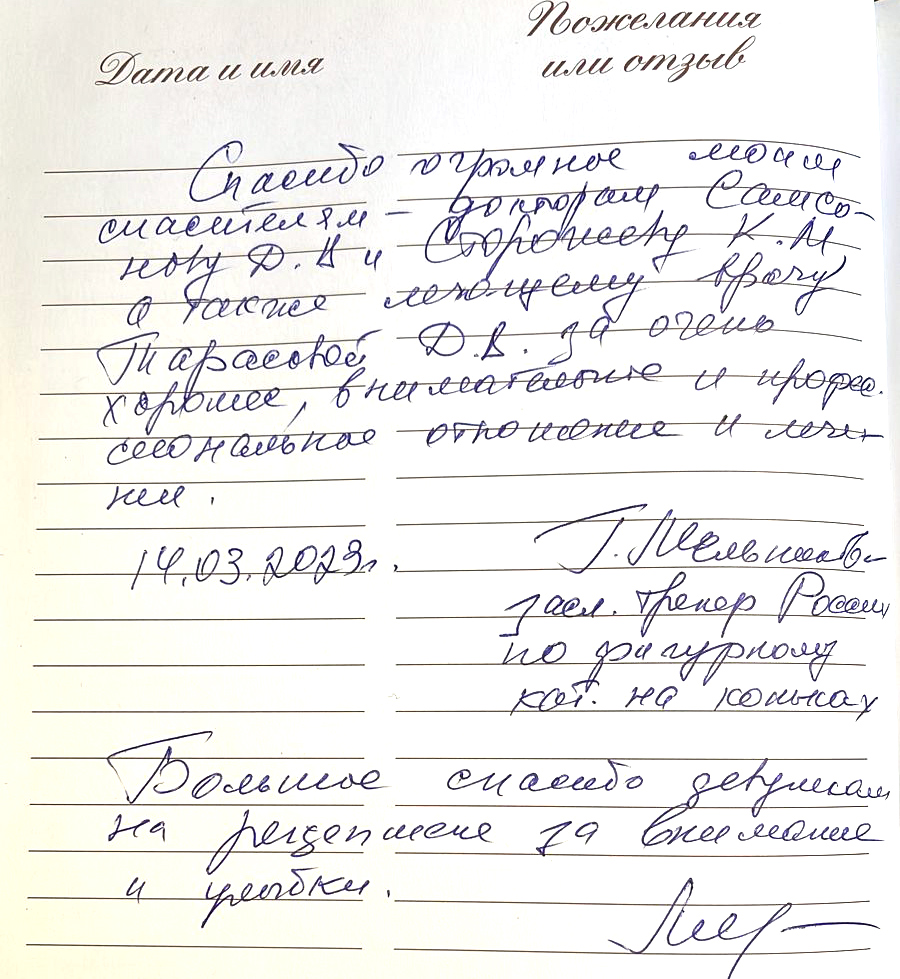 Дата и имя
Пожелания
или отзыв
Спасибо огромное моим
спасителям – докторам Самсо-
нову Д.В и Сторожеву К.М
а также лечащему врачу
Тарасовой Д.В. за очень
хорошее, внимательное и профес.
сиональное отношение и лече-
нии.
14.03.2023г.
Г. Мельников –
засл. тренер России
по фигурному
кат. на коньках
Большое спасибо девушкам
на рецепшене за внимание
и улыбки.